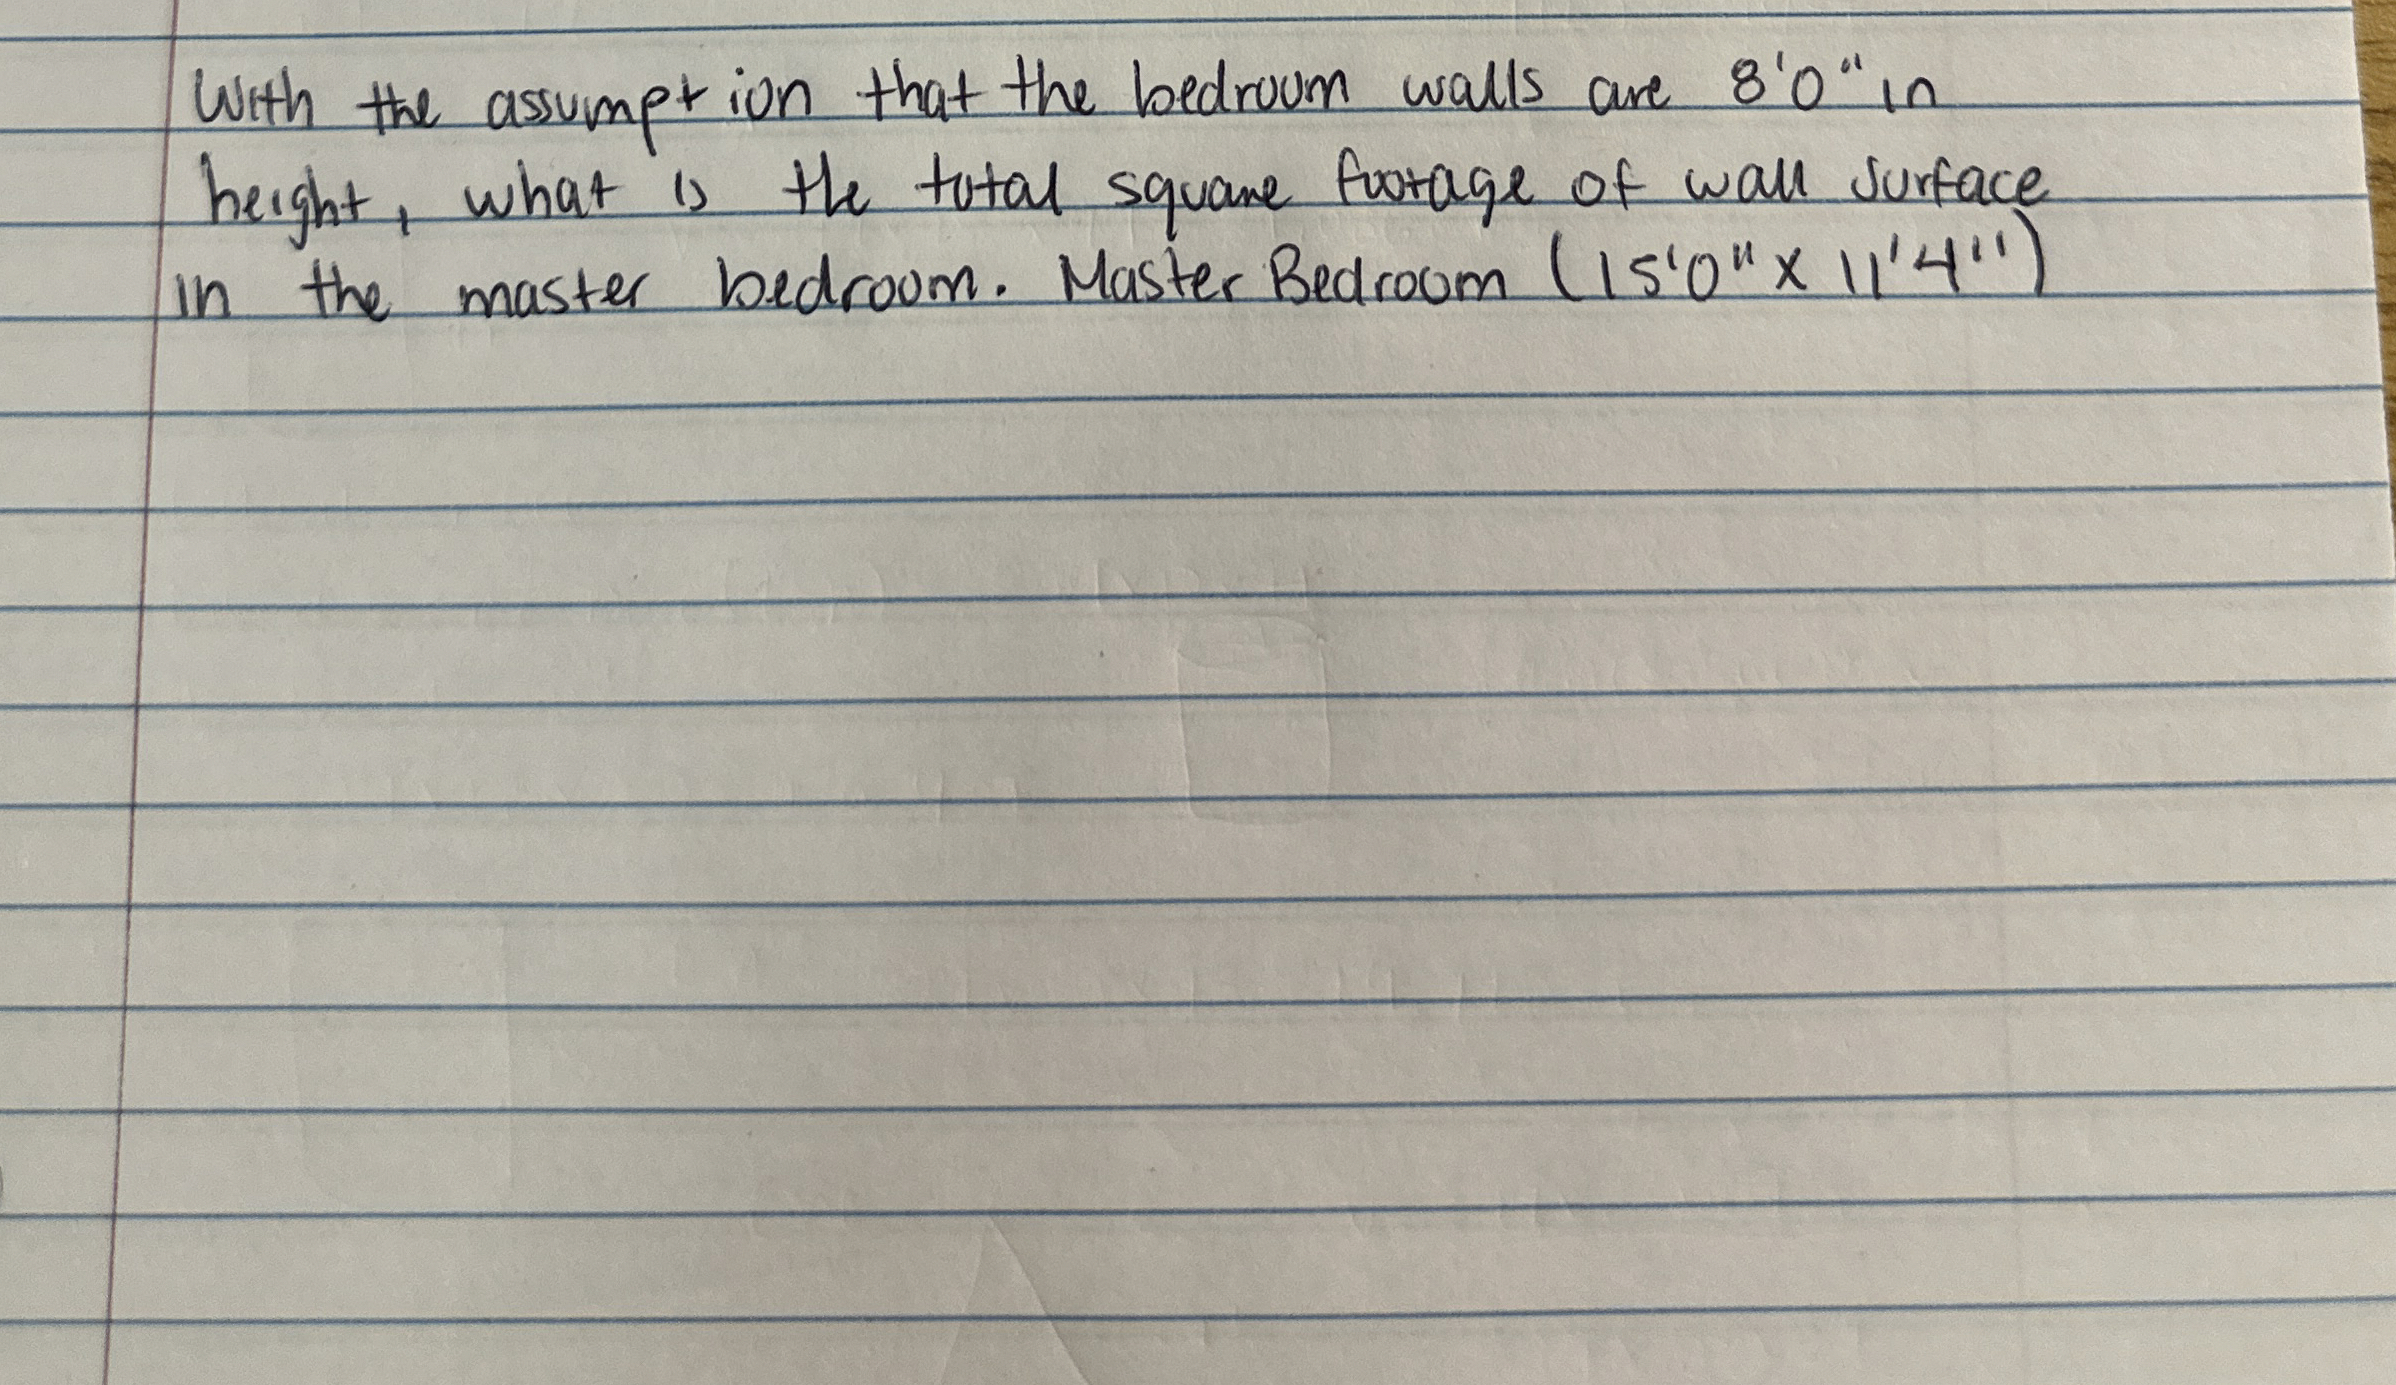 With the assumption that the bedroom walls are 8'0" in
height, what is the total square footage of wall surface
in the master bedroom. Master Bedroom (15'0" x 11'4")